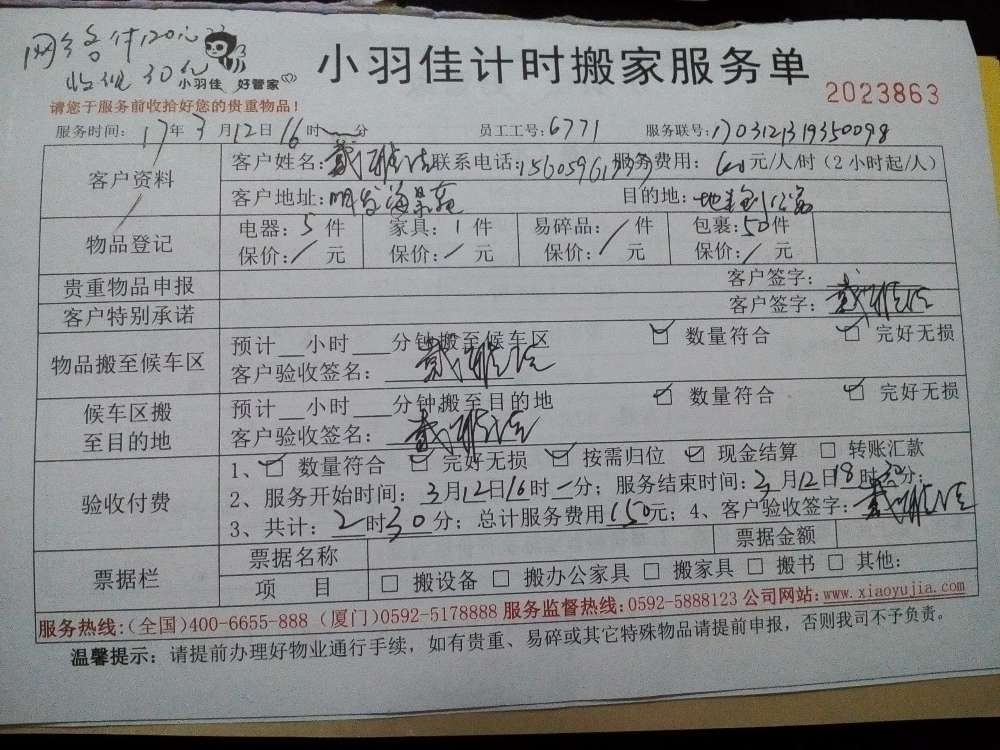 网络付120元
收现30元
小羽佳 好管家
小羽佳计时搬家服务单
请您于服务前收拾好您的贵重物品！
2023863
服务时间：17年3月12日16时 分 员工工号：6771 服务联号：1703121319350098
客户资料 客户姓名：戴雅 联系电话：1560596 服务费用：60元/人/时（2小时起/人）
客户地址：明发海景苑 目的地：
物品登记 电器：5件 家具：1件 易碎品：/件 包裹：50件
保价：/元 保价：/元 保价：/元 保价：/元
贵重物品申报 客户签字：
客户特别承诺 客户签字：戴雅
物品搬至候车区 预计__小时___分钟搬至候车区 ☑ 数量符合 ☑ 完好无损
客户验收签名：戴雅
候车区搬至目的地 预计__小时___分钟,搬至目的地 ☑ 数量符合 ☑ 完好无损
客户验收签名：戴雅
验收付费 1、☑ 数量符合 ☑ 完好无损 ☑ 按需归位 ☑ 现金结算 □ 转账汇款
2、服务开始时间：3月12日16时 分；服务结束时间：3月12日18时30分；
3、共计：2时30分；总计服务费用150元；4、客户验收签字：戴雅
票据栏 票据名称 票据金额
项 目 □ 搬设备 □ 搬办公家具 □ 搬家具 □ 搬书 □ 其他:
服务热线：(全国)400-6655-888 (厦门)0592-5178888 服务监督热线：0592-5888123 公司网站：www.xiaoyujia.com
温馨提示：请提前办理好物业通行手续，如有贵重、易碎或其它特殊物品请提前申报，否则我司不予负责。